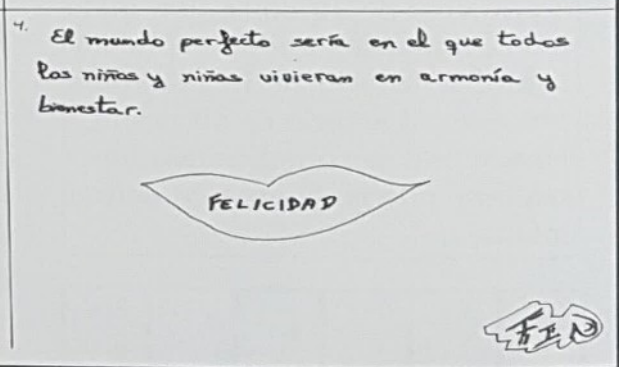 4. El mundo perfecto sería en el que todos
los niños y niñas vivieran en armonía y
bienestar.
FELICIDAD
FIN